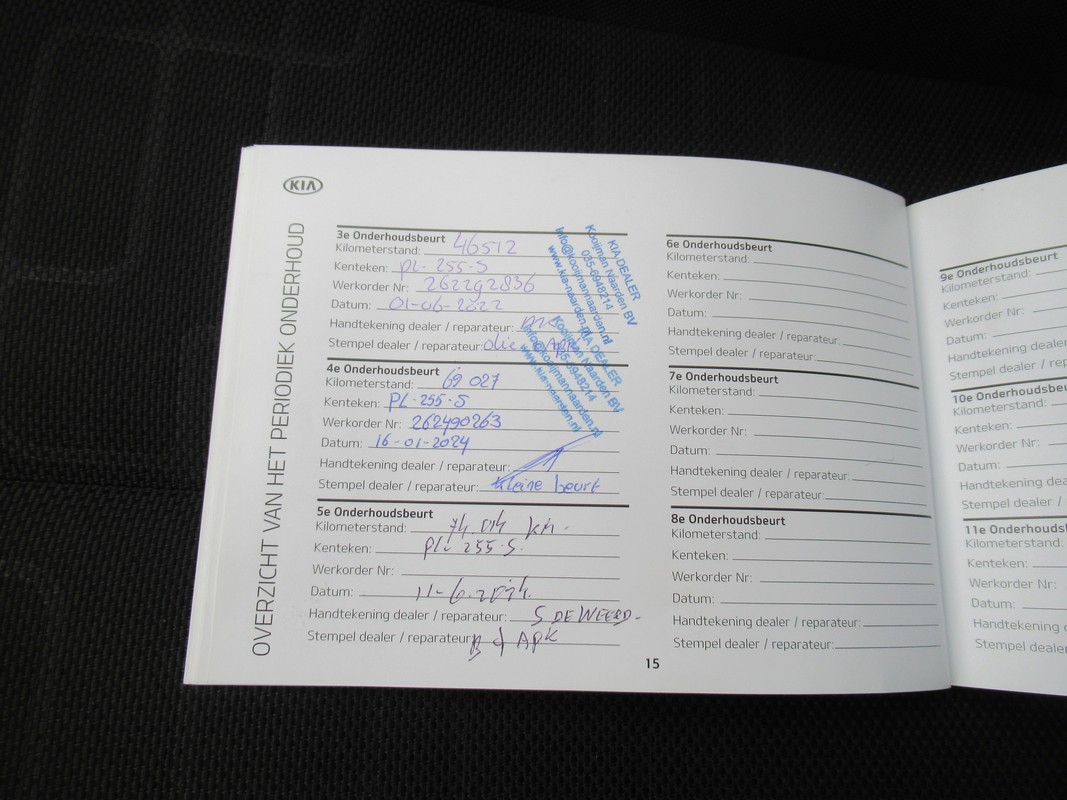 KIA
OVERZICHT VAN HET PERIODIEK ONDERHOUD
3e Onderhoudsbeurt
Kilometerstand: 46512
Kenteken: PL-255-S
Werkorder Nr: 262292836
Datum: 01-06-2022
Handtekening dealer / reparateur:
Stempel dealer / reparateur olie APK
KIA DEALER
Kooijman Naarden BV
035-6948214
Info@kooijmannaarden.nl
www.kia-naarden.nl
4e Onderhoudsbeurt
Kilometerstand: 69 027
Kenteken: PL-255-S
Werkorder Nr: 262490263
Datum: 16-01-2024
Handtekening dealer / reparateur:
Stempel dealer / reparateur: kleine beurt
KIA DEALER
Kooijman Naarden BV
035-6948214
Info@kooijmannaarden.nl
www.kia-naarden.nl
5e Onderhoudsbeurt
Kilometerstand: 74. km.
Kenteken: PL 255-S.
Werkorder Nr:
Datum: 11-6.2024.
Handtekening dealer / reparateur: S DE WEERD-
Stempel dealer / reparateur: APK
15
6e Onderhoudsbeurt
Kilometerstand:
Kenteken:
Werkorder Nr:
Datum:
Handtekening dealer / reparateur:
Stempel dealer / reparateur:
7e Onderhoudsbeurt
Kilometerstand:
Kenteken:
Werkorder Nr:
Datum:
Handtekening dealer / reparateur:
Stempel dealer / reparateur:
8e Onderhoudsbeurt
Kilometerstand:
Kenteken:
Werkorder Nr:
Datum:
Handtekening dealer / reparateur:
Stempel dealer / reparateur:
9e Onderhoudsbeurt
Kilometerstand:
Kenteken:
Werkorder Nr:
Datum:
Handtekening dealer
Stempel dealer /
10e Onderhoudsbe
Kilometerstand:
Kenteken:
Werkorder Nr:
Datum:
Handtekening deale
Stempel dealer /
11e Onderhouds
Kilometerstand:
Kenteken:
Werkorder Nr:
Datum:
Handtekening
Stempel deale